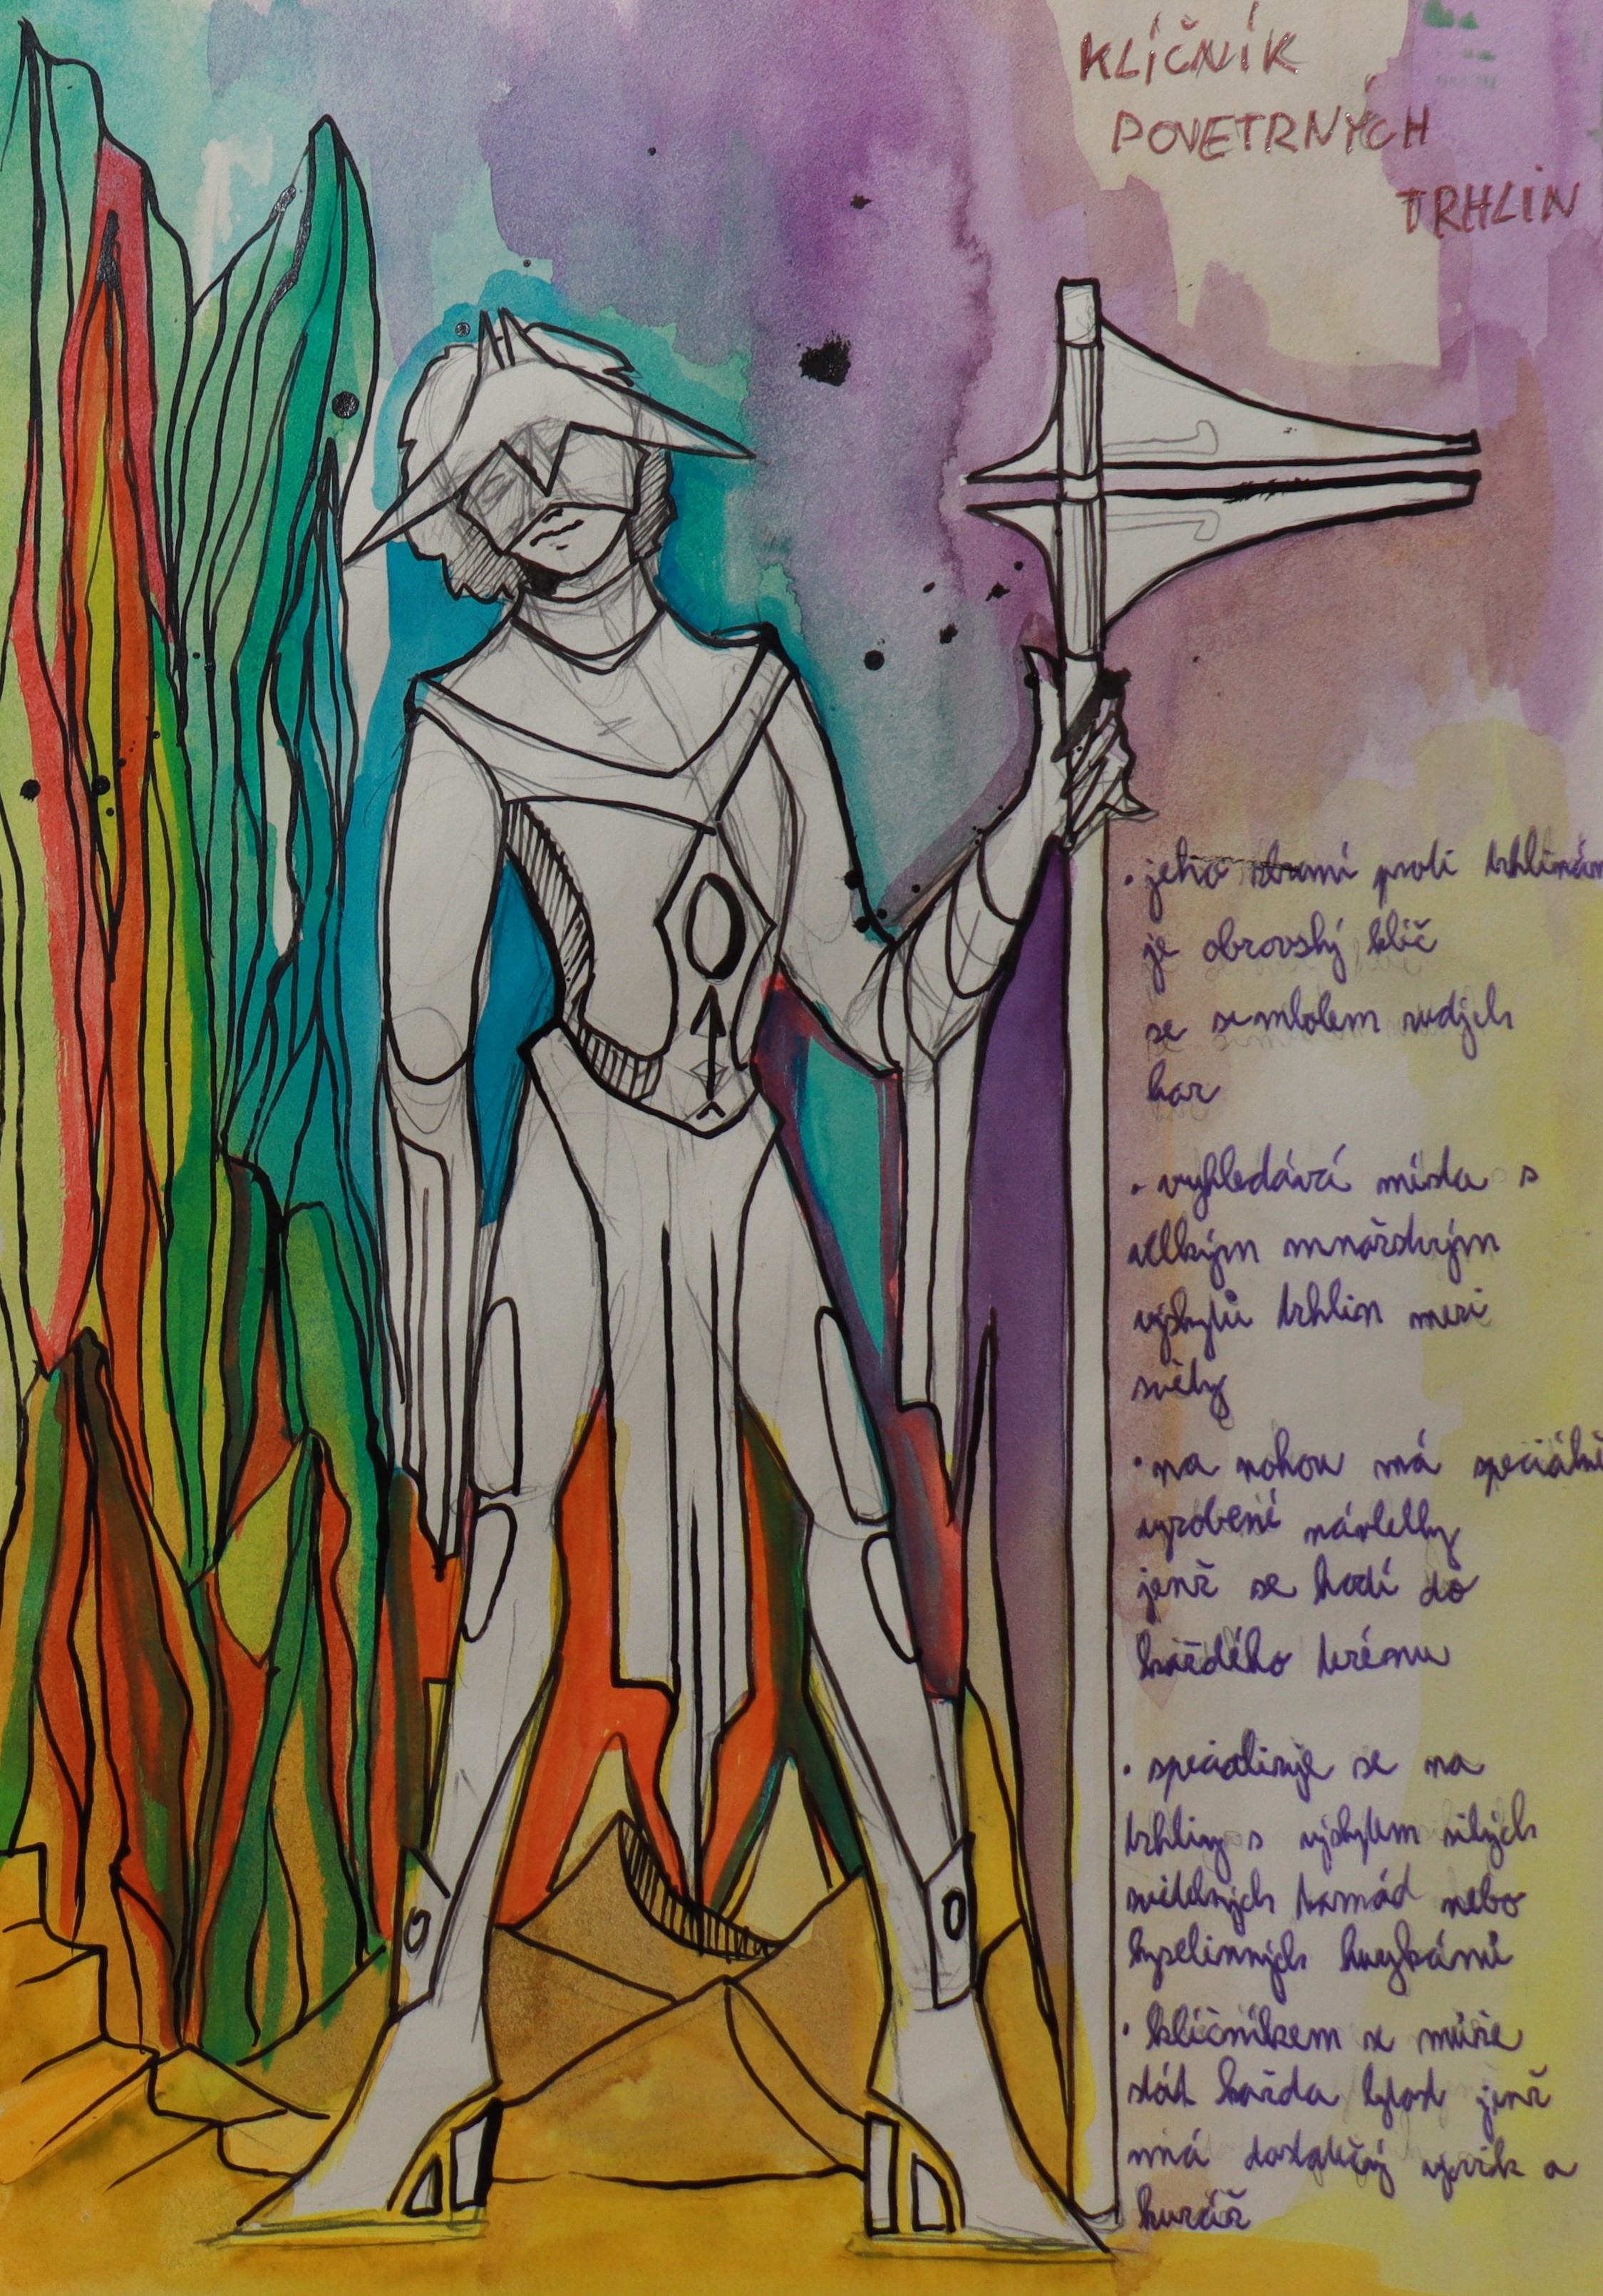 KLÍČNÍK
POVETRNÝCH
TRHLIN
• jeho zbraní proti trhlinám
je obrovský klíč
se symbolem rudých
har
• vyhledává místa s
velkým množstvým
výskytů trhlin mezi
světy
• na nohou má speciálně
vyrobené návleky
jenž se hodí do
každého terénu
• specializuje se na
trhliny s výskytem silých
světelných tornád nebo
kyselinných hurykánů
• klíčníkem se může
stát každa bytost jenž
má dostatečný výcvik a
kuráž